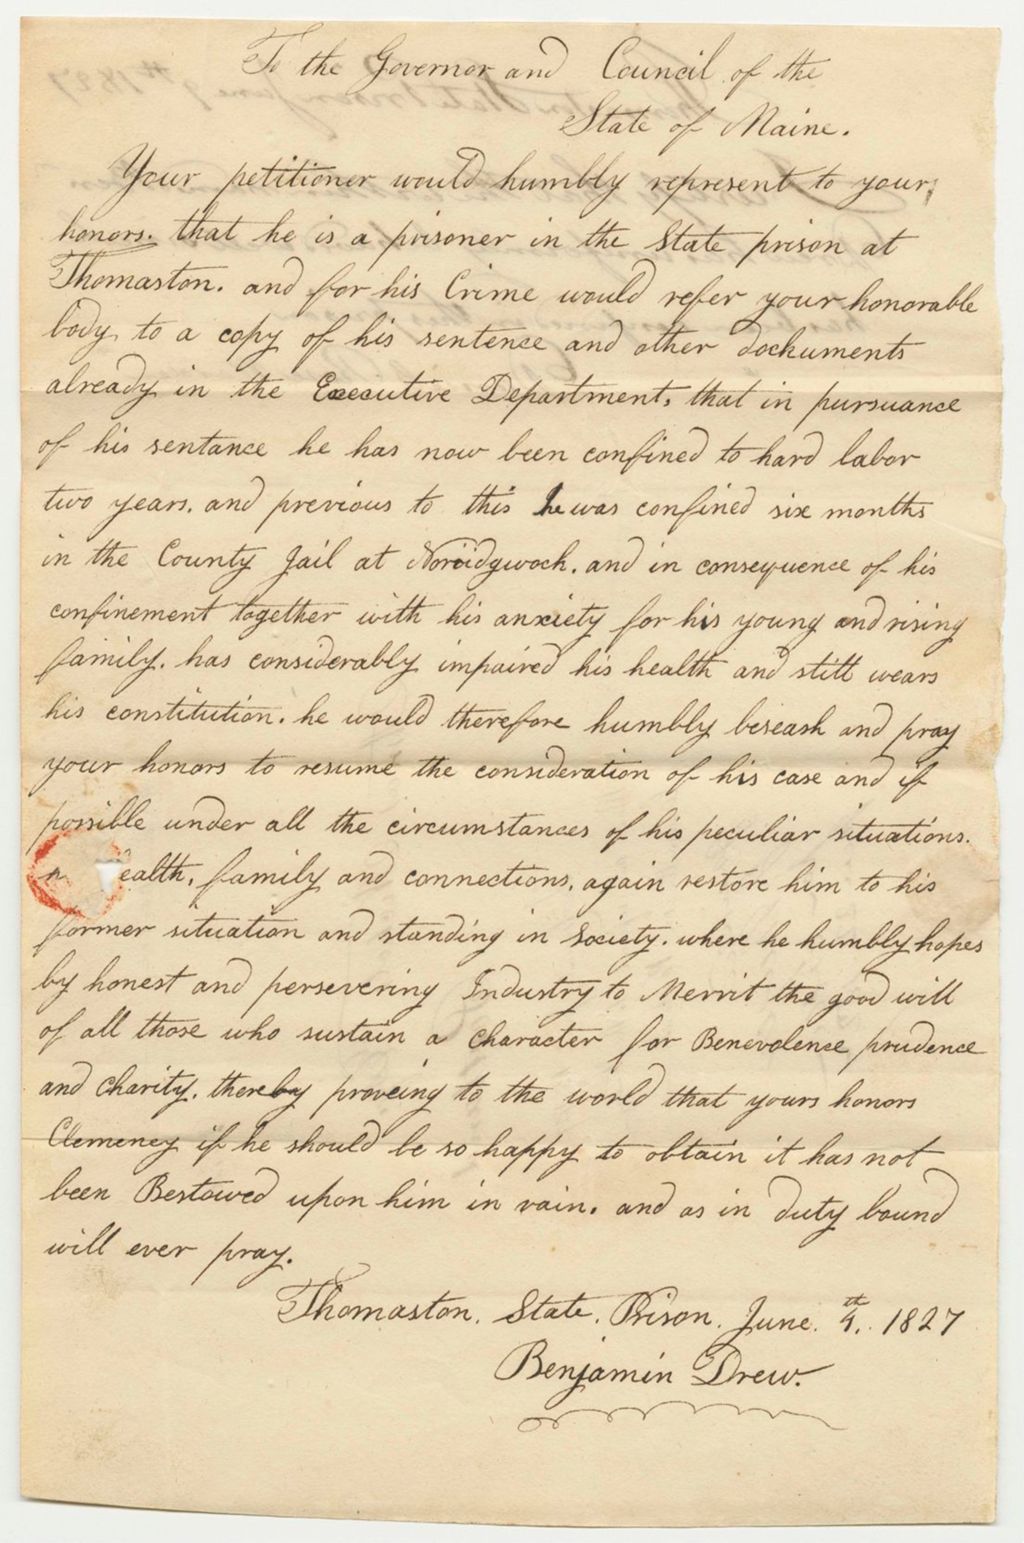 To the Governor and Council of the
State of Maine.
Your petitioner would humbly represent to your
honors. that he is a prisoner in the State prison at
Thomaston. and for his Crime would refer your honorable
body to a copy of his sentence and other dockuments
already in the Executive Department, that in pursuance
of his sentance he has now been confined to hard labor
two years. and previous to this he was confined six months
in the County Jail at Noridgwock. and in consequence of his
confinement together with his anxiety for his young and rising
family. has considerably impaired his health and still wears
his constitution. he would therefore humbly beseash and pray
your honors to resume the consideration of his case and if
possible under all the circumstances of his peculiar situations.
ealth, family and connections, again restore him to his
former situation and standing in Society. where he humbly hopes
by honest and persevering Industry to Merrit the good will
of all those who sustain a character for Benevolence prudence
and charity. thereby proveing to the world that yours honors
Clemeney if he should be so happy to obtain it has not
been Bestowed upon him in vain. and as in duty bound
will ever pray.
Thomaston. State. Prison. June. 4th. 1827
Benjamin Drew.